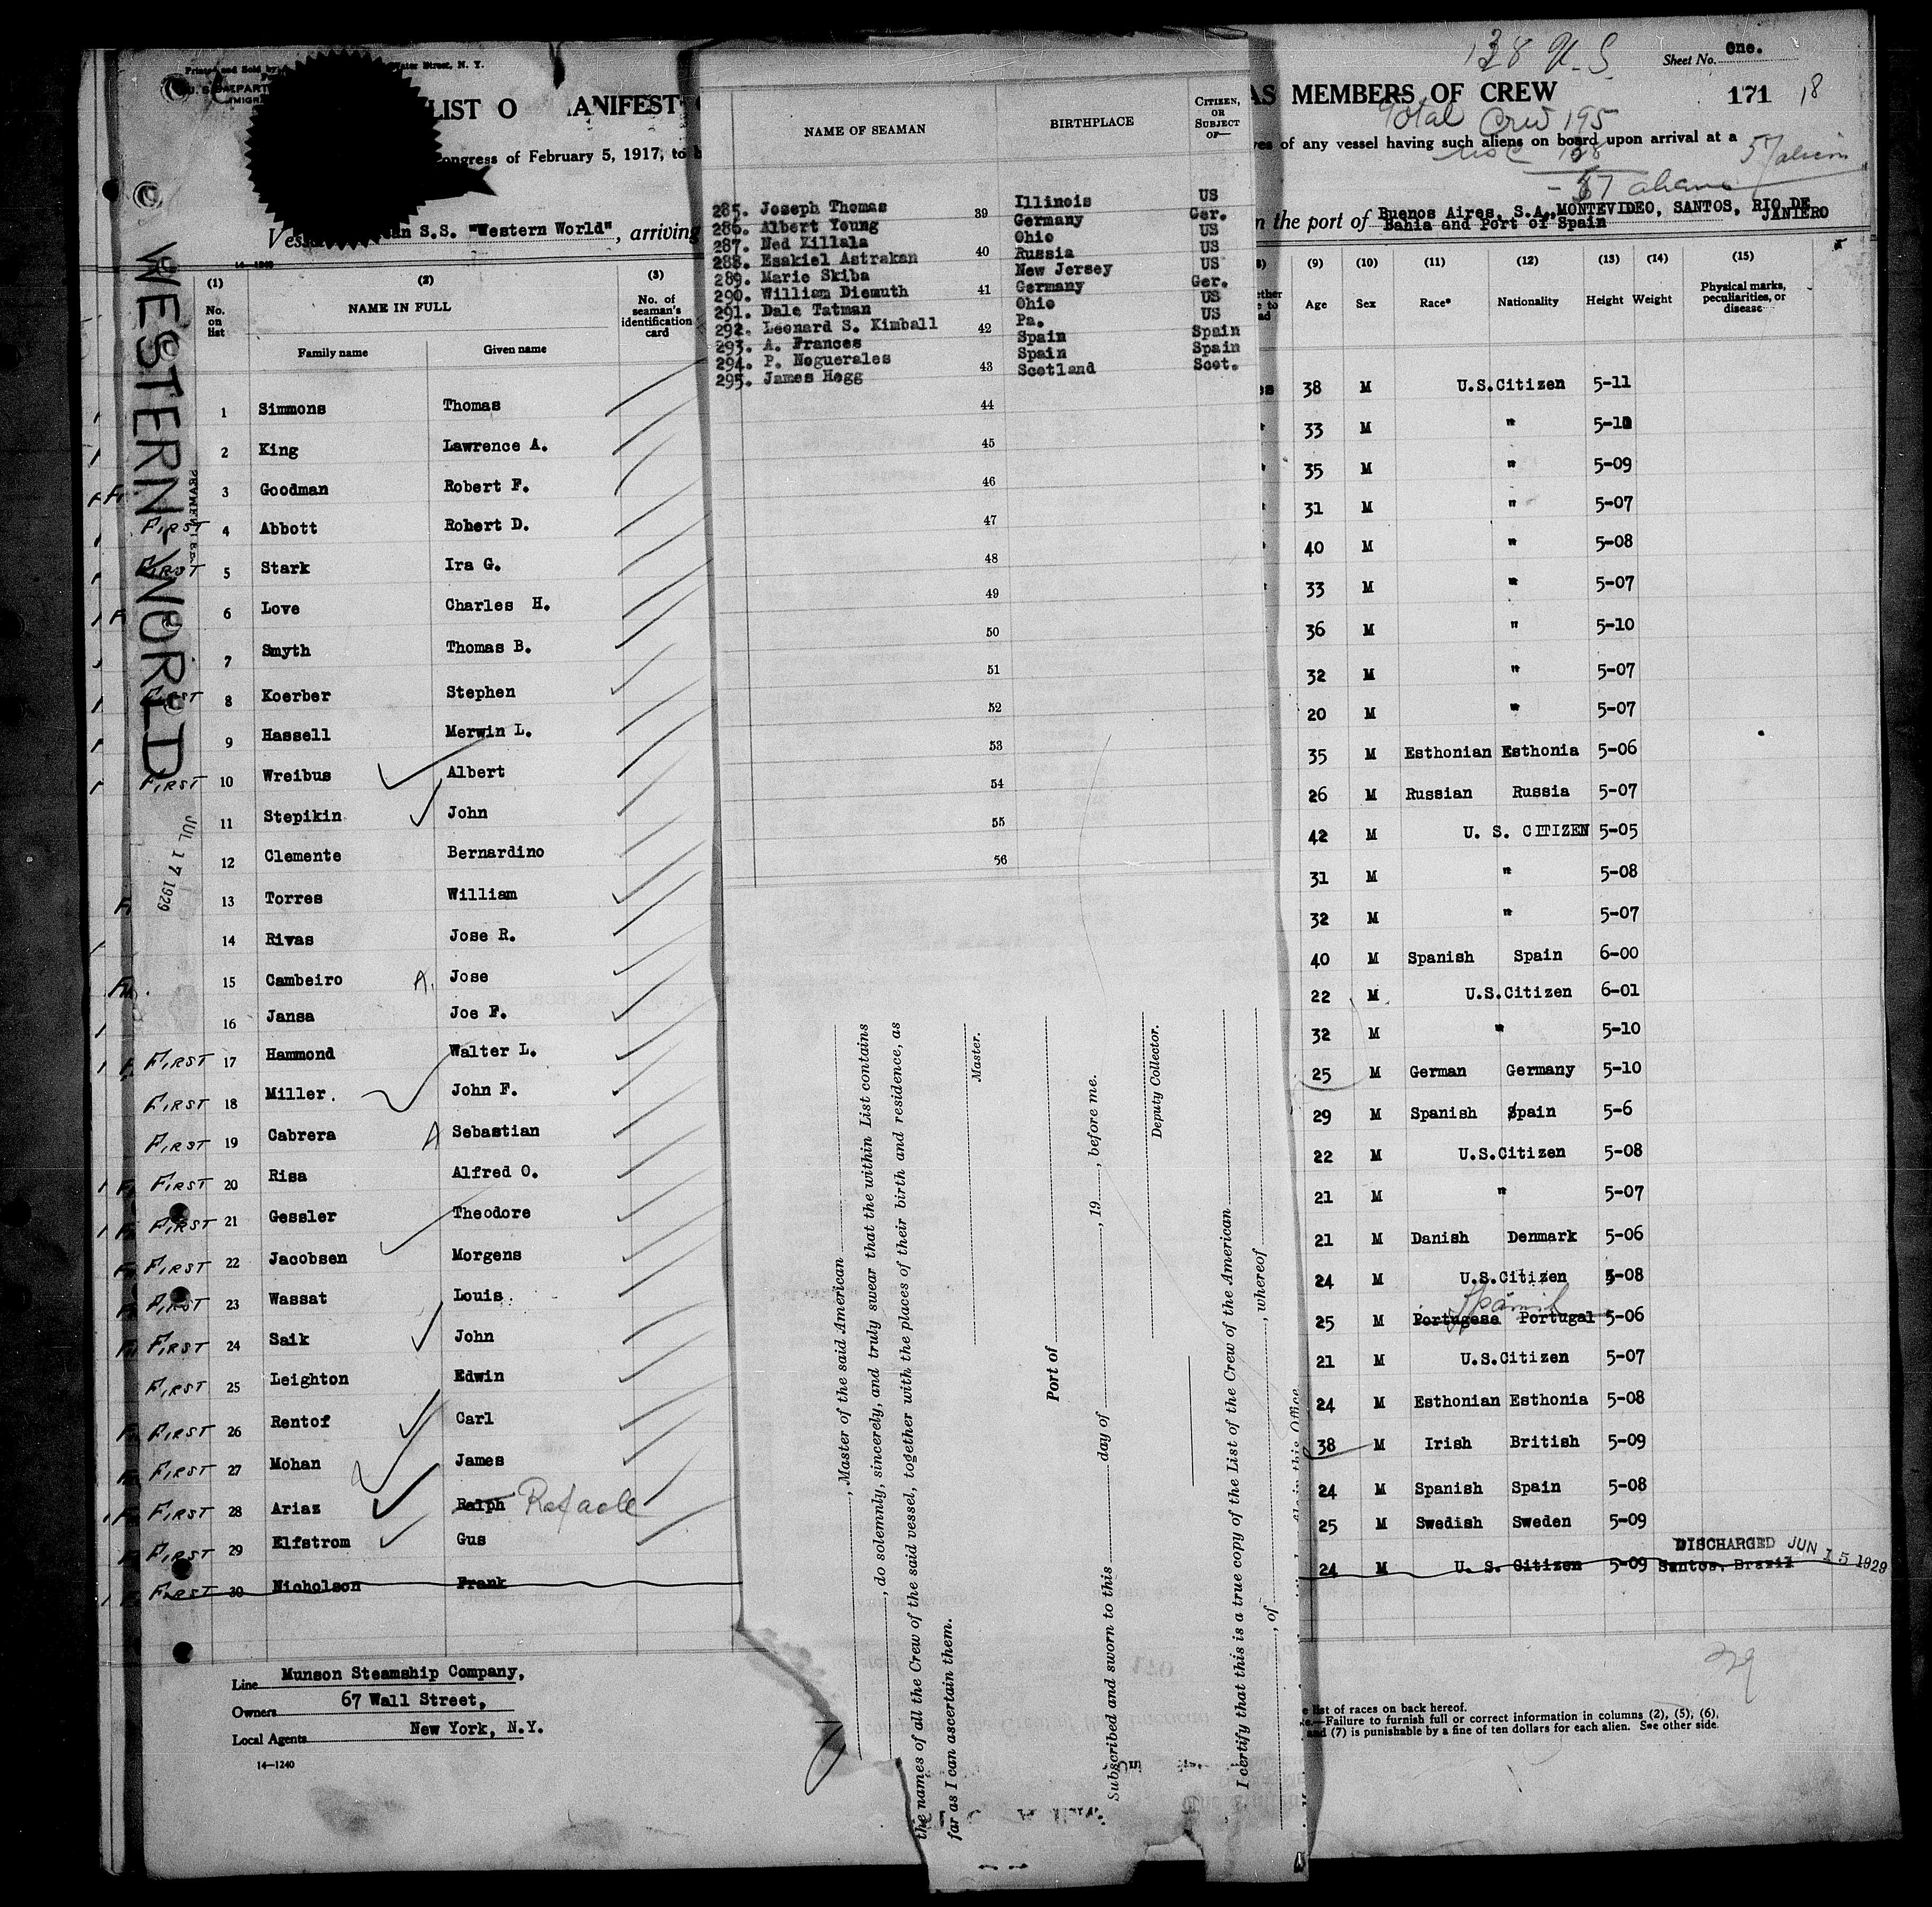 138 U.S.
Sheet No. One.
LIST O
ANIFEST
AS MEMBERS OF CREW
171
18
Total Crew 195
ongress of February 5, 1917, to b
ves of any vessel having such aliens on board upon arrival at a
57 aliens
- 57 aliens
Vess an S.S. "Western World", arriving
n the port of Buenos Aires, S.A., MONTEVIDEO, SANTOS, RIO DE JANIERO
Bahia and Port of Spain
WESTERN WORLD
JUL 17 1929
NAME OF SEAMAN BIRTHPLACE CITIZEN, OR SUBJECT OF—
285. Joseph Thomas Illinois US
286. Albert Young 39 Germany Ger.
287. Ned Killala Ohio US
288. Esakiel Astrakan 40 Russia US
289. Marie Skiba New Jersey US
290. William Diemuth 41 Germany Ger.
291. Dale Tatman Ohio US
292. Leonard S. Kimball 42 Pa. US
293. A. Frances Spain Spain
294. P. Noguerales Spain Spain
295. James Hogg 43 Scotland Scot.
44
45
46
47
48
49
50
51
52
53
54
55
56
(1) (2) (3) (9) (10) (11) (12) (13) (14) (15)
No. on list NAME IN FULL No. of seaman's identification card Age Sex Race* Nationality Height Weight Physical marks, peculiarities, or disease
Family name Given name
1 Simmons Thomas 38 M U.S.Citizen 5-11
2 King Lawrence A. 33 M " 5-10
3 Goodman Robert F. 35 M " 5-09
FIRST 4 Abbott Robert D. 31 M " 5-07
FIRST 5 Stark Ira G. 40 M " 5-08
6 Love Charles H. 33 M " 5-07
7 Smyth Thomas B. 36 M " 5-10
FIRST 8 Koerber Stephen 32 M " 5-07
9 Hassell Merwin L. 20 M " 5-07
FIRST 10 Wreibus Albert 35 M Esthonian Esthonia 5-06
11 Stepikin John 26 M Russian Russia 5-07
12 Clemente Bernardino 42 M U. S. CITIZEN 5-05
13 Torres William 31 M " 5-08
14 Rivas Jose R. 32 M " 5-07
15 Cambeiro A. Jose 40 M Spanish Spain 6-00
16 Jansa Joe F. 22 M U.S.Citizen 6-01
FIRST 17 Hammond Walter L. 32 M " 5-10
FIRST 18 Miller. John F. 25 M German Germany 5-10
FIRST 19 Cabrera A Sebastian 29 M Spanish Spain 5-6
FIRST 20 Risa Alfred O. 22 M U.S.Citizen 5-08
FIRST 21 Gessler Theodore 21 M " 5-07
FIRST 22 Jacobsen Morgens 21 M Danish Denmark 5-06
FIRST 23 Wassat Louis 24 M U.S.Citizen 5-08
Spanish
FIRST 24 Saik John 25 M Portugese Portugal 5-06
FIRST 25 Leighton Edwin 21 M U.S.Citizen 5-07
FIRST 26 Rentof Carl 24 M Esthonian Esthonia 5-08
FIRST 27 Mohan James 38 M Irish British 5-09
FIRST 28 Ariaz Ralph Rafaele 24 M Spanish Spain 5-08
FIRST 29 Elfstrom Gus 25 M Swedish Sweden 5-09
DISCHARGED JUN 15 1929
FIRST 30 Nicholson Frank 24 M U. S. Citizen 5-09 Santos, Brazil
29
Line Munson Steamship Company,
Owners 67 Wall Street,
Local Agents New York, N.Y.
14—1240
e list of races on back hereof.
te.—Failure to furnish full or correct information in columns (2), (5), (6),
and (7) is punishable by a fine of ten dollars for each alien. See other side.
, Master of the said American
, do solemnly, sincerely, and truly swear that the within List contains
the names of all the Crew of the said vessel, together with the places of their birth and residence, as
far as I can ascertain them.
Master.
Port of
Subscribed and sworn to this day of , 19 , before me.
Deputy Collector.
I certify that this is a true copy of the List of the Crew of the American
, of , whereof